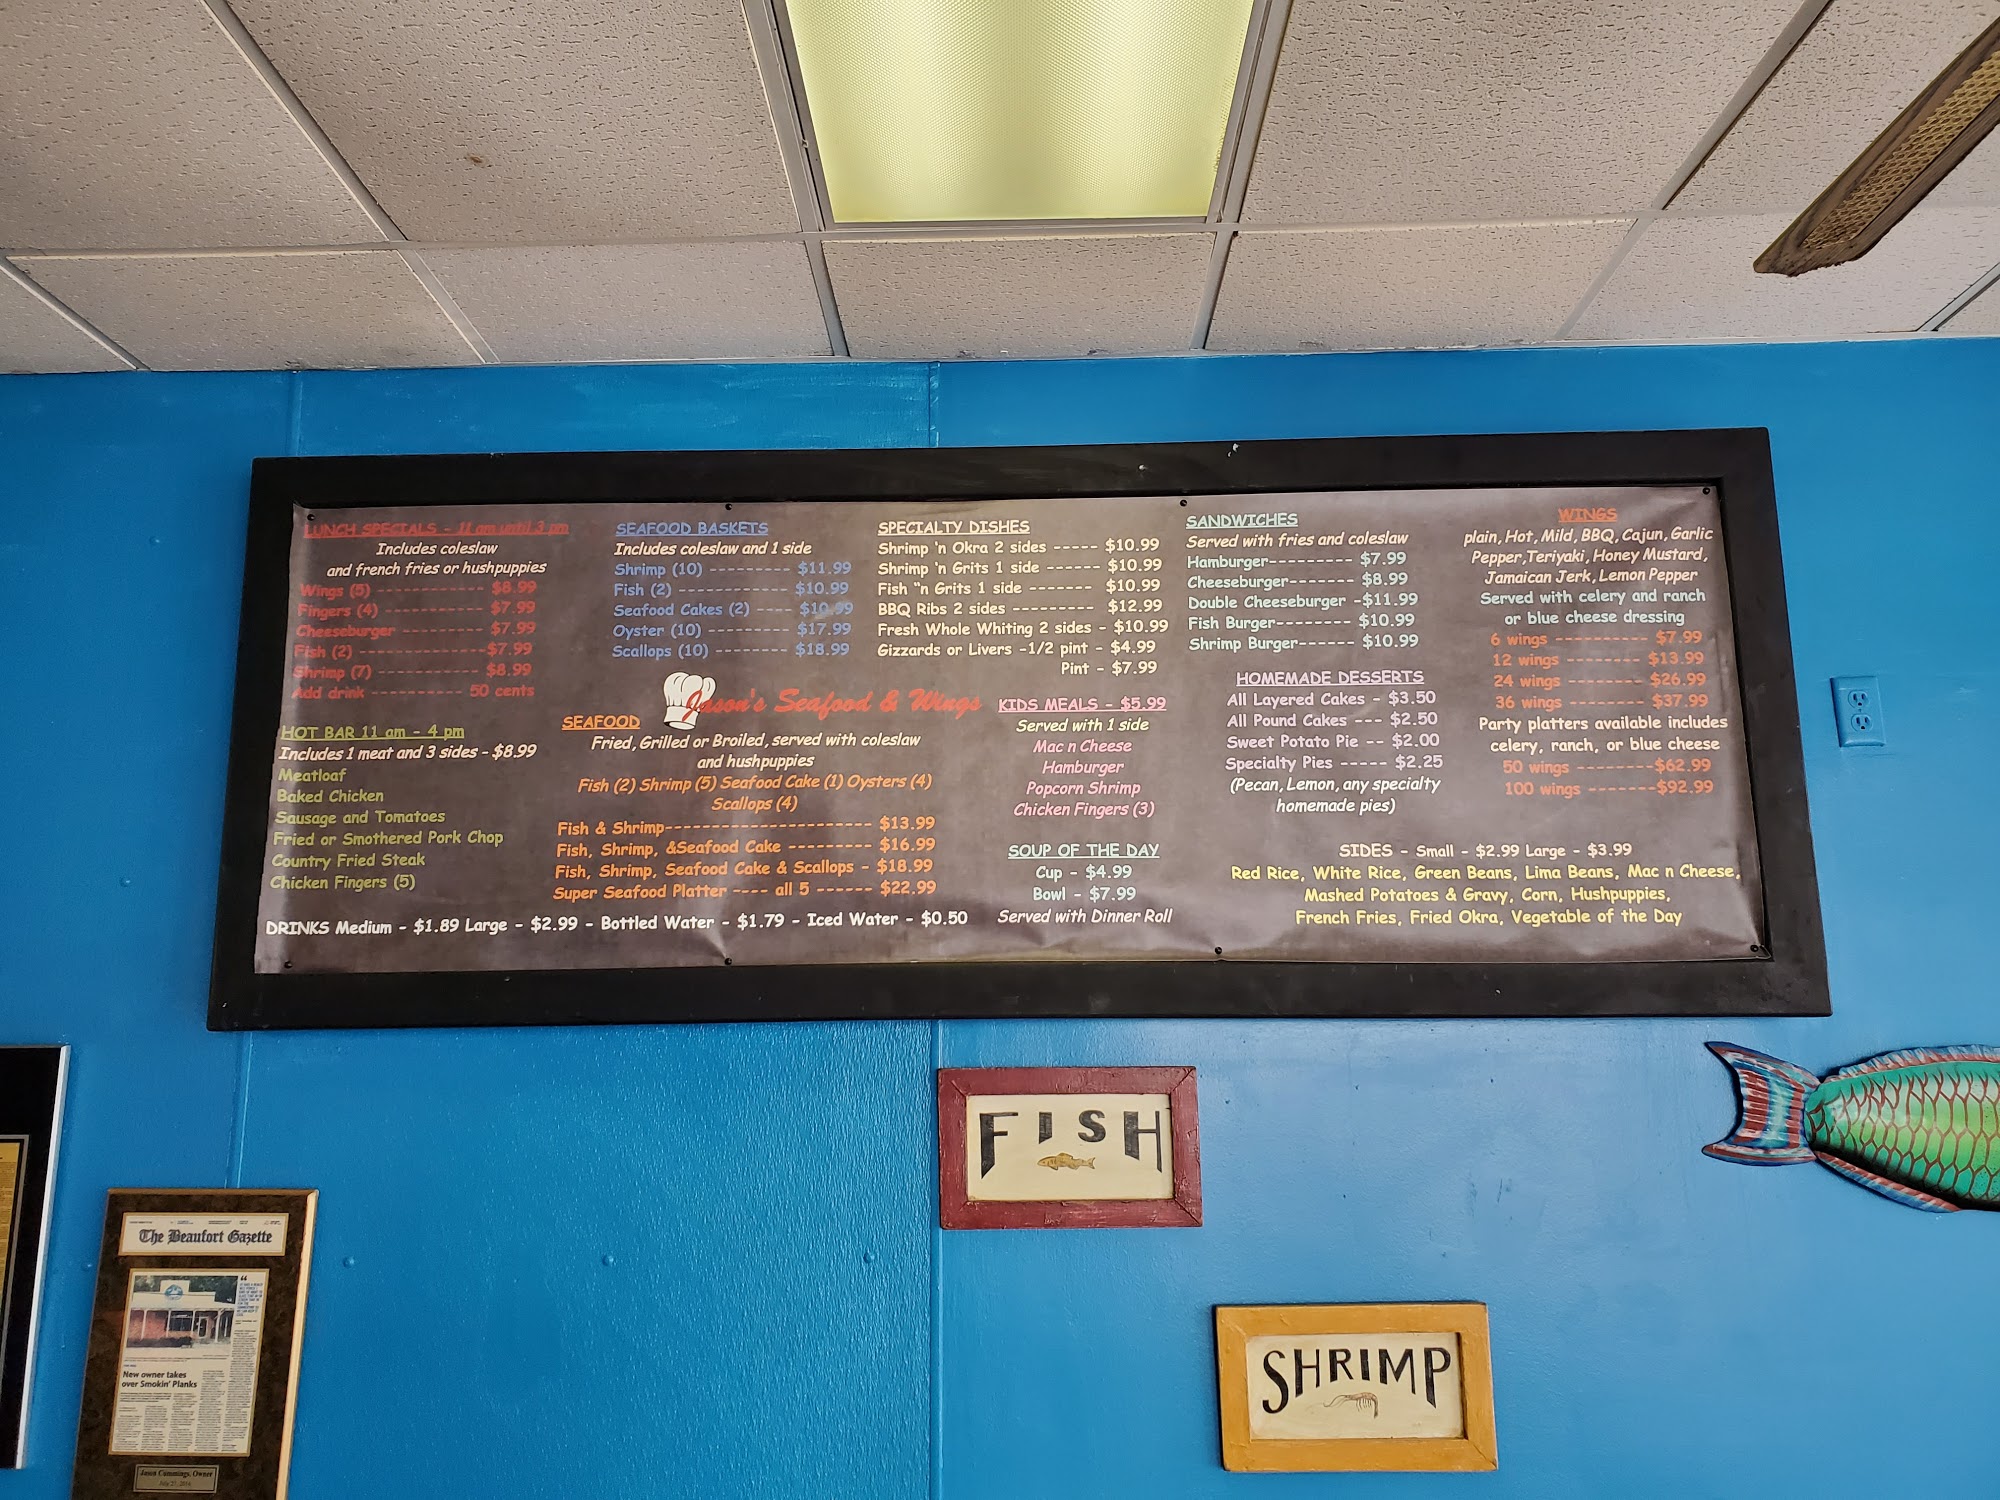 LUNCH SPECIALS - 11 am until 3 pm
Includes coleslaw
and french fries or hushpuppies
Wings (5) ------------- $8.99
Fingers (4) ------------ $7.99
Cheeseburger ---------- $7.99
Fish (2) ---------------$7.99
Shrimp (7) ------------ $8.99
Add drink ----------- 50 cents
HOT BAR 11 am - 4 pm
Includes 1 meat and 3 sides - $8.99
Meatloaf
Baked Chicken
Sausage and Tomatoes
Fried or Smothered Pork Chop
Country Fried Steak
Chicken Fingers (5)
SEAFOOD BASKETS
Includes coleslaw and 1 side
Shrimp (10) ----------- $11.99
Fish (2) ------------- $10.99
Seafood Cakes (2) ---- $10.99
Oyster (10) ---------- $17.99
Scallops (10) --------- $18.99
Jason's Seafood & Wings
SEAFOOD
Fried, Grilled or Broiled, served with coleslaw
and hushpuppies
Fish (2) Shrimp (5) Seafood Cake (1) Oysters (4)
Scallops (4)
Fish & Shrimp----------------------- $13.99
Fish, Shrimp, &Seafood Cake --------- $16.99
Fish, Shrimp, Seafood Cake & Scallops - $18.99
Super Seafood Platter ---- all 5 ------ $22.99
DRINKS Medium - $1.89 Large - $2.99 - Bottled Water - $1.79 - Iced Water - $0.50
SPECIALTY DISHES
Shrimp 'n Okra 2 sides ----- $10.99
Shrimp 'n Grits 1 side ------ $10.99
Fish "n Grits 1 side ------- $10.99
BBQ Ribs 2 sides --------- $12.99
Fresh Whole Whiting 2 sides - $10.99
Gizzards or Livers -1/2 pint - $4.99
Pint - $7.99
KIDS MEALS - $5.99
Served with 1 side
Mac n Cheese
Hamburger
Popcorn Shrimp
Chicken Fingers (3)
SOUP OF THE DAY
Cup - $4.99
Bowl - $7.99
Served with Dinner Roll
SANDWICHES
Served with fries and coleslaw
Hamburger--------- $7.99
Cheeseburger------- $8.99
Double Cheeseburger -$11.99
Fish Burger-------- $10.99
Shrimp Burger------- $10.99
HOMEMADE DESSERTS
All Layered Cakes - $3.50
All Pound Cakes --- $2.50
Sweet Potato Pie -- $2.00
Specialty Pies ----- $2.25
(Pecan, Lemon, any specialty
homemade pies)
WINGS
plain, Hot, Mild, BBQ, Cajun, Garlic
Pepper,Teriyaki, Honey Mustard,
Jamaican Jerk, Lemon Pepper
Served with celery and ranch
or blue cheese dressing
6 wings ---------- $7.99
12 wings -------- $13.99
24 wings -------- $26.99
36 wings -------- $37.99
Party platters available includes
celery, ranch, or blue cheese
50 wings --------$62.99
100 wings -------$92.99
SIDES - Small - $2.99 Large - $3.99
Red Rice, White Rice, Green Beans, Lima Beans, Mac n Cheese,
Mashed Potatoes & Gravy, Corn, Hushpuppies,
French Fries, Fried Okra, Vegetable of the Day
FISH
SHRIMP
The Beaufort Gazette
New owner takes
over Smokin' Planks
Jason Cummings, Owner